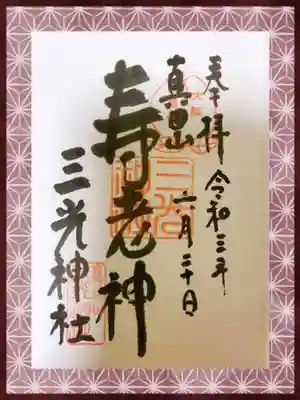 奉拝
令和三年
六月二十日
真田山
寿老神
三光神社